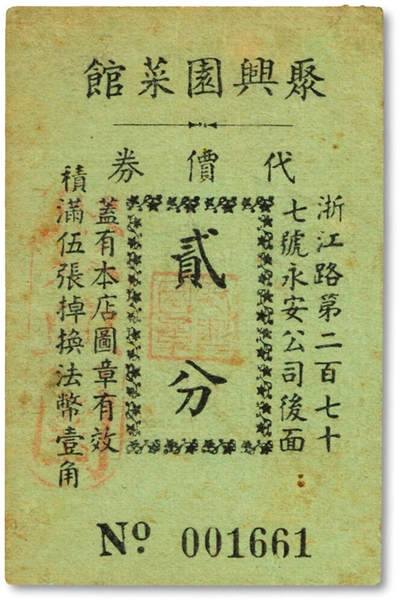 聚興園菜館
代價券
浙江路第二百七十
七號永安公司後面
貳分
蓋有本店圖章有效
積滿伍張掉換法幣壹角
Nº 001661